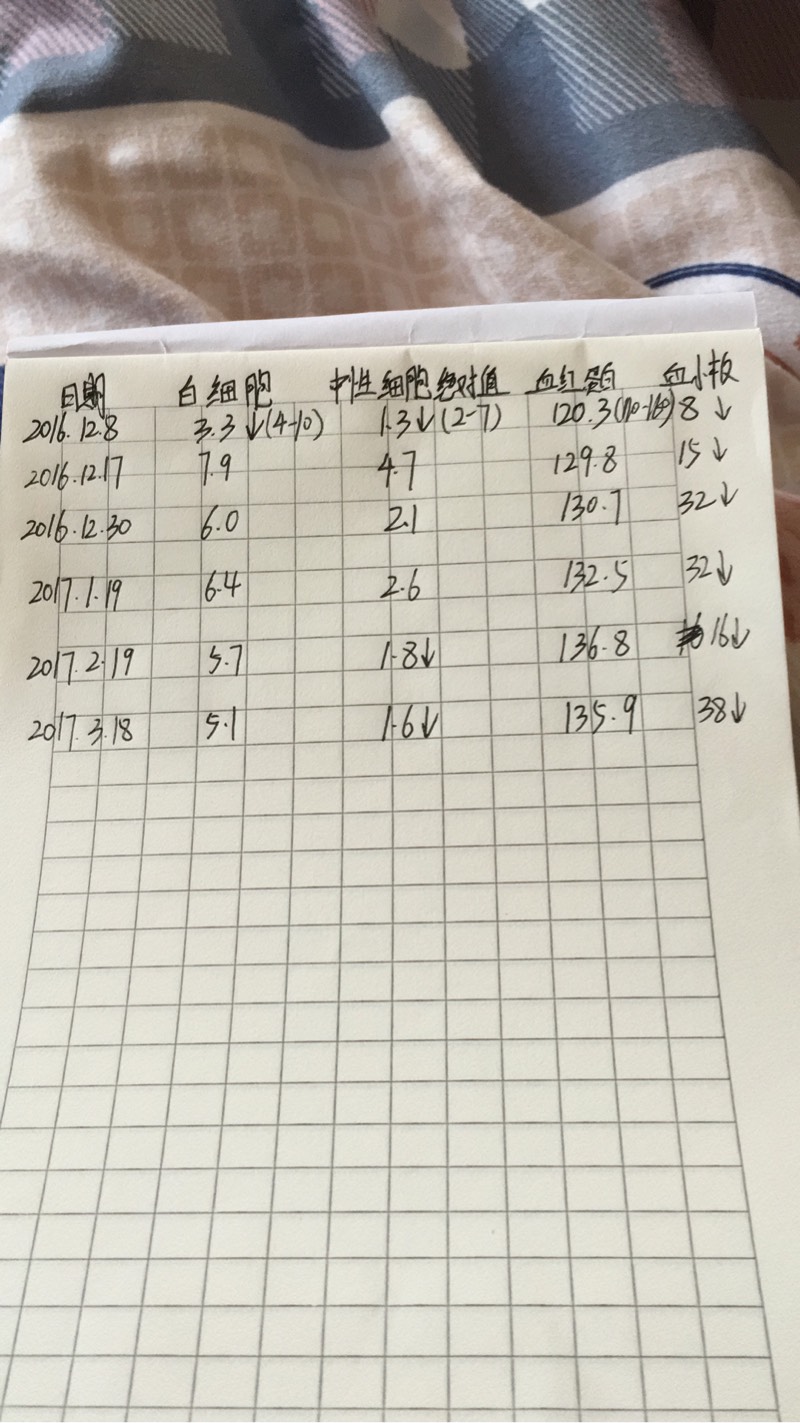 日期 白细胞 中性细胞绝对值 血红蛋白 血小板
2016.12.8 3.3↓(4-10) 1.3↓(2-7) 120.3(110-160) 8 ↓
2016.12.17 7.9 4.7 129.8 15↓
2016.12.30 6.0 2.1 130.7 32↓
2017.1.19 6.4 2.6 132.5 32↓
2017.2.19 5.7 1.8↓ 136.8 16↓
2017.3.18 5.1 1.6↓ 135.9 38↓